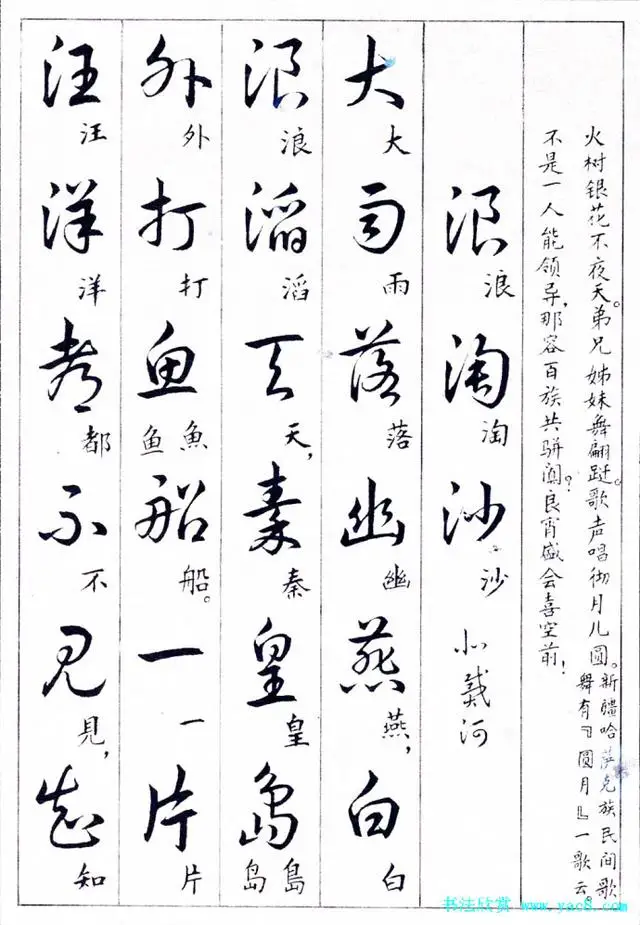 火树银花不夜天。弟兄姊妹舞翩跹。歌声唱彻月儿圆。
新疆哈萨克族民间歌
舞有『圆月』一歌云。
不是一人能领导，那容百族共骈阗？良宵盛会喜空前！
浪淘沙 北戴河
浪淘沙
大雨落幽燕白
大雨落幽燕，白
浪滔天秦皇岛
浪滔天，秦皇岛島
外打鱼船一片
外打鱼魚船。一片
汪洋都不见知
汪洋都不見，知
书法欣赏 www.yac8.com